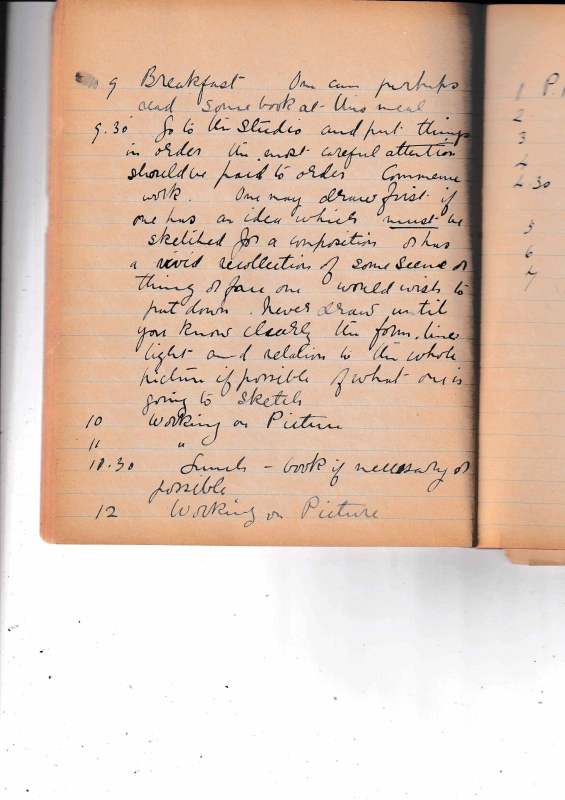 9 Breakfast One can perhaps
read some book at this meal
9.30 Go to the Studio and put things
in order the most careful attention
should be paid to order Commence
work. One may draw first if
one has an idea which must be
sketched for a composition or has
a vivid recollection of some scene or
thing or face one would wish to
put down. Never draw until
you know clearly the form, line
light and relation to the whole
picture if possible of what one is
going to sketch
10 Working on Picture
11 "
11.30 Lunch - book if necessary or
possible
12 Working on Picture
1 P.
2
3
4
4 30
5
6
7